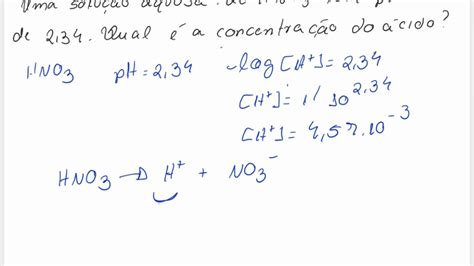 Uma solução aquosa de
de 2,34. Qual é a concentração do ácido?
HNO3 pH=2,34 -log[H+]=2,34
[H+]= 1/10^2,34
[H+]= 4,57.10^-3
HNO3 → H+ + NO3-